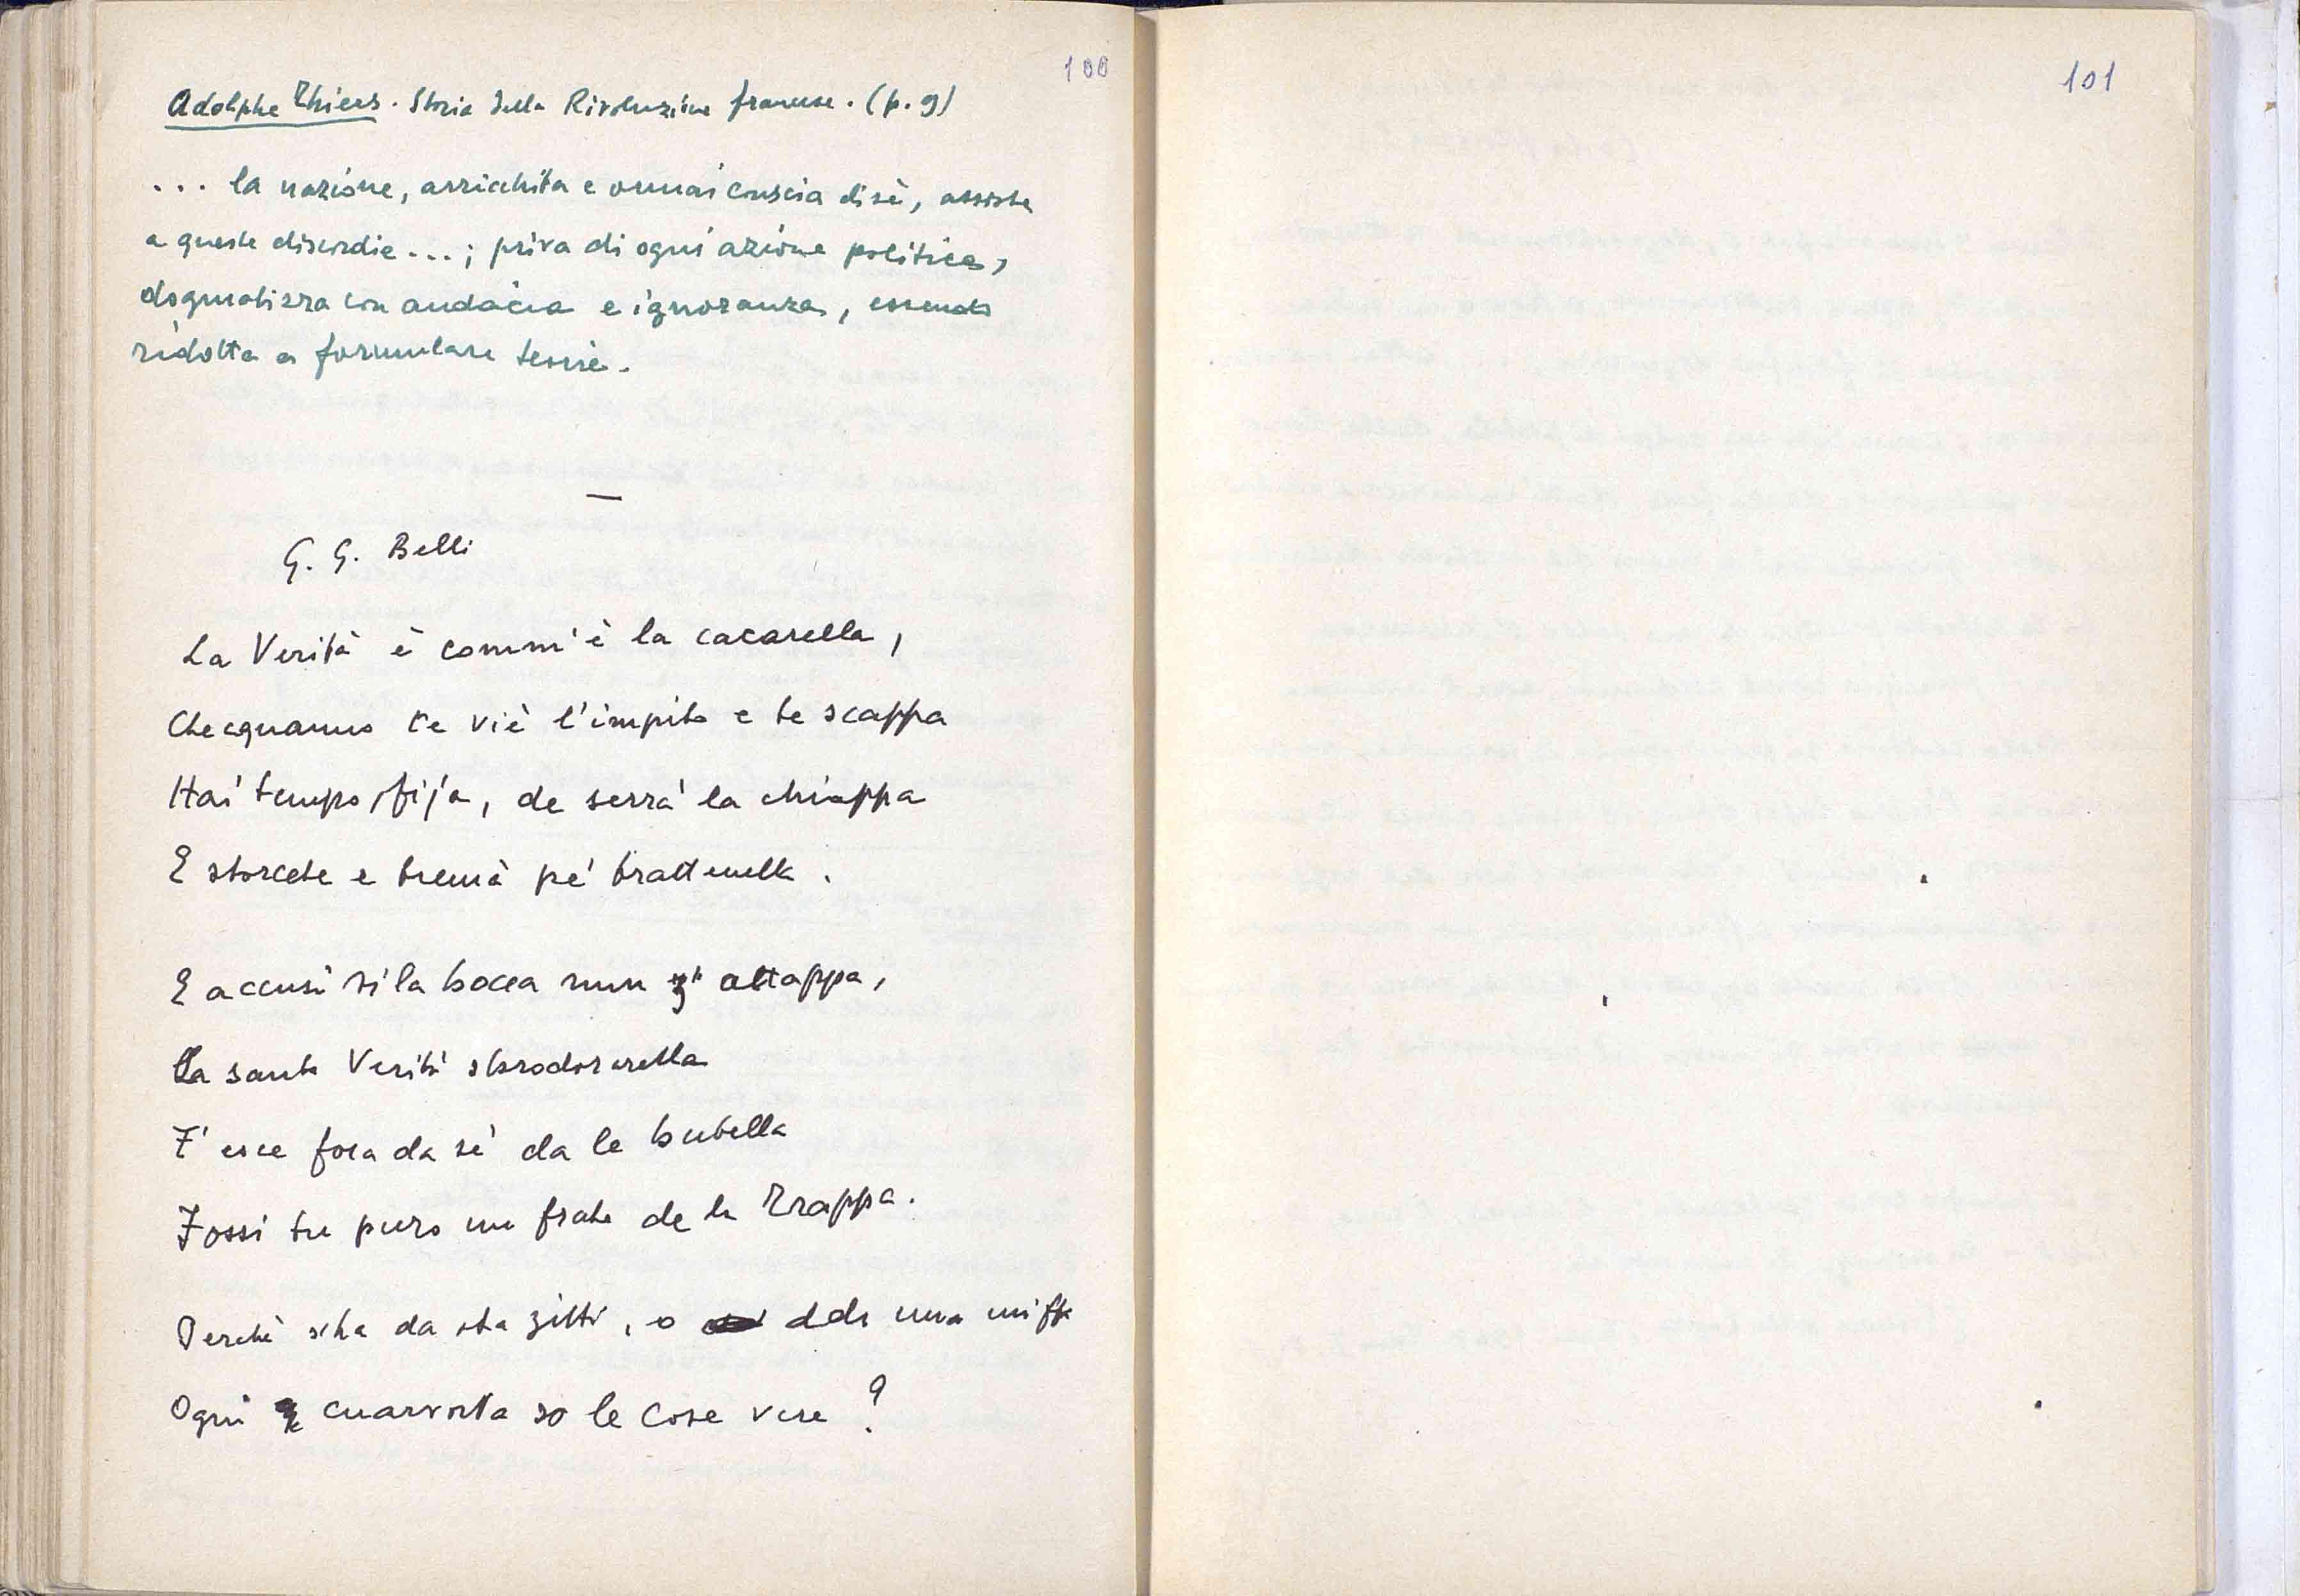 100
Adolphe Thiers. Storia della Rivoluzione francese. (p. 9)
... la nazione, arricchita e ormai conscia di sè, assiste
a queste discordie...; priva di ogni azione politica,
dogmatizza con audacia e ignoranza, essendo
ridotta a formulare teorie.
—
G. G. Belli
La Verità è comm'è la cacarella,
Checquanno te viè l'impito e te scappa
Hai tempo, fija, de serrà la chiappa
E storcete e tremà pe' trattenella.
E accusì si la bocca nun z'attappa,
La santa Verità sbrodorarella
T'esce fora da sè da le budella
Fossi tu puro un frate de la Trappa.
Perchè s'ha da sta zitti, o dde una miffa
Ogni cuarvorta so le cose vere?
101